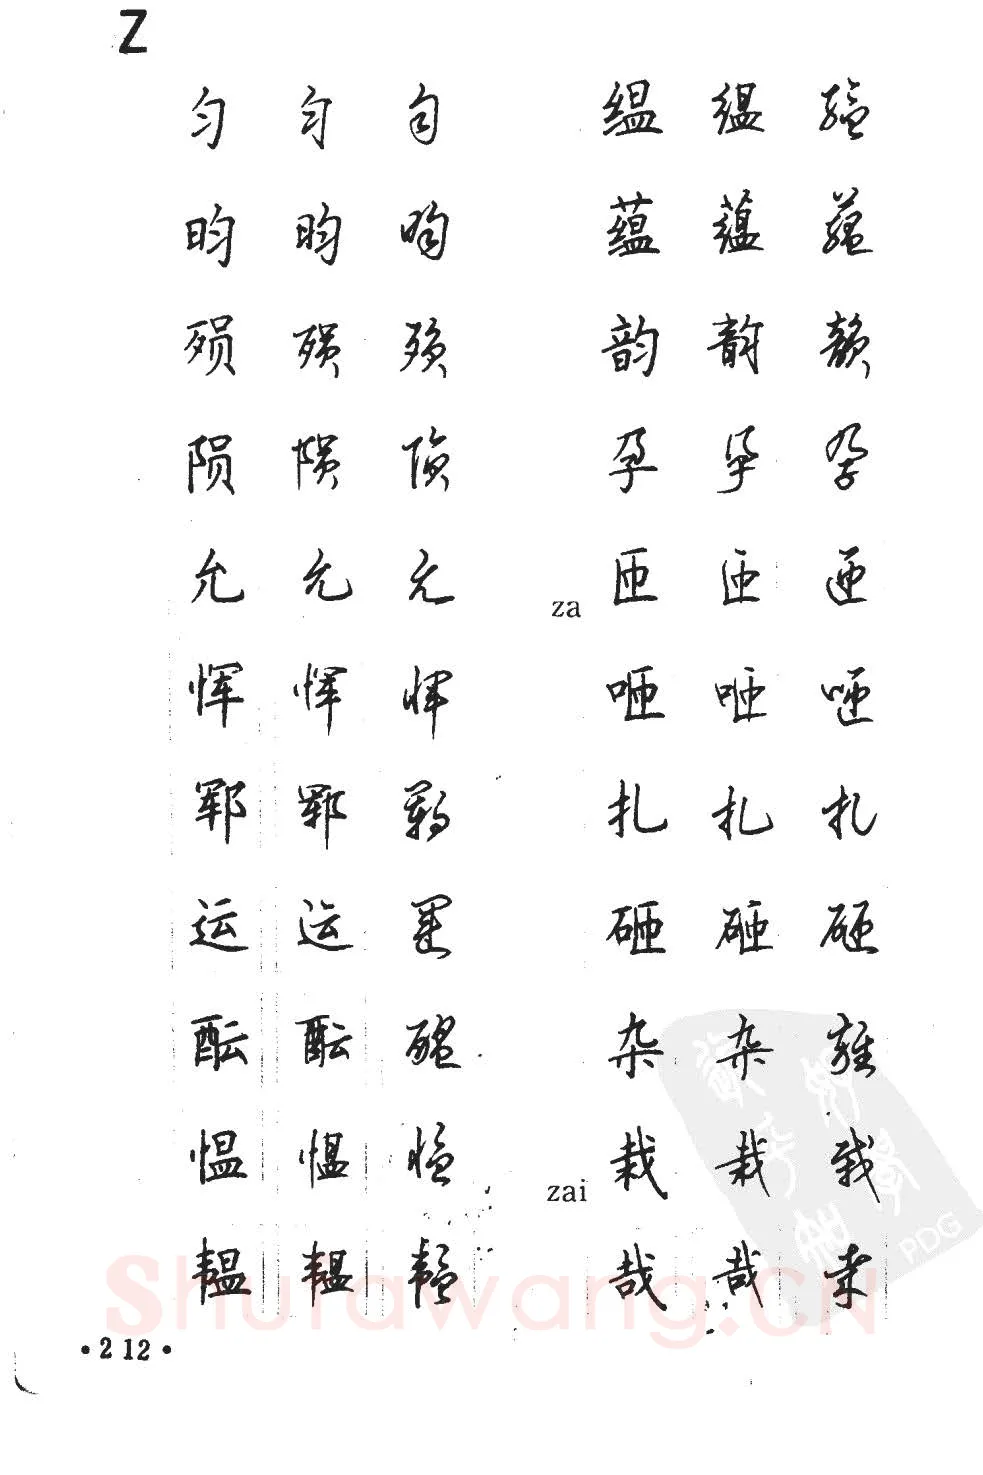 Z
匀 匀 匀
昀 昀 昀
殒 殒 殒
陨 陨 陨
允 允 允
恽 恽 恽
郓 郓 郓
运 运 运
酝 酝 醖
愠 愠 愠
韫 韫 韫
缊 缊 缊
蕴 蕴 蕴
韵 韵 韵
孕 孕 孕
za 匝 匝 匝
咂 咂 咂
扎 扎 扎
砸 砸 砸
杂 杂 雜
zai 栽 栽 栽
哉 哉 哉
PDG
Shufawang.CN
·212·